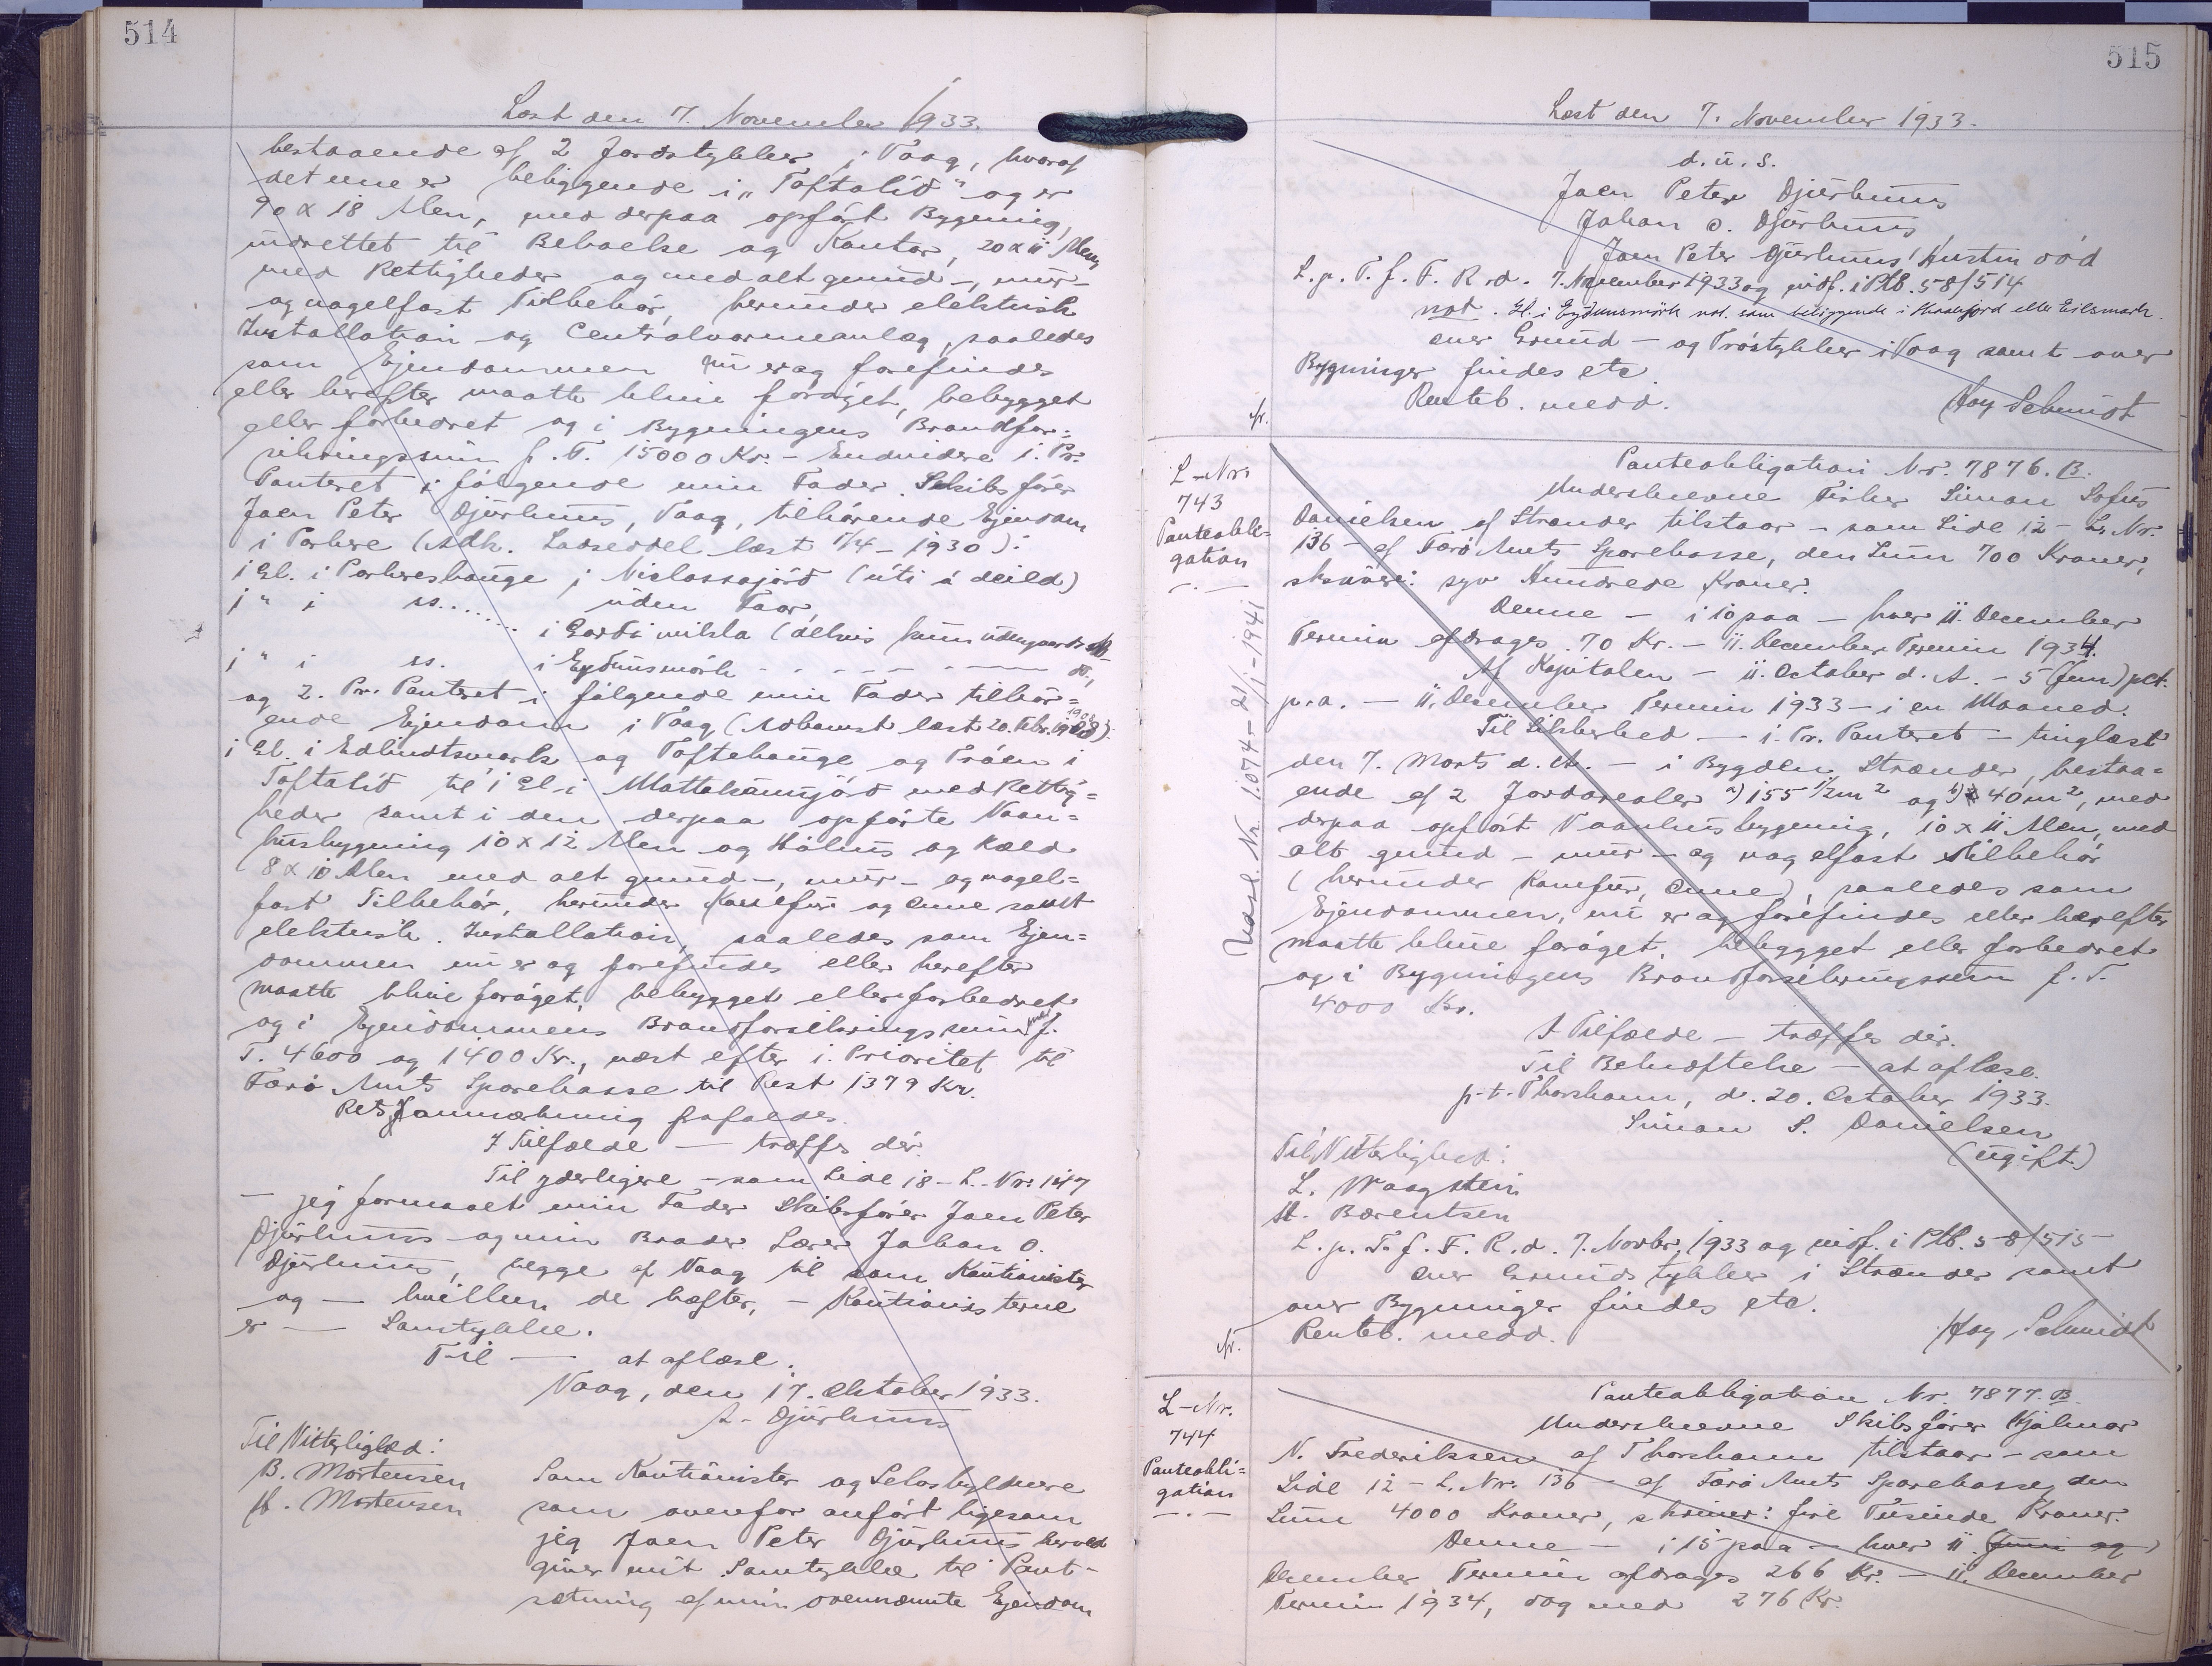 514
Læst den 7. November 1933.
bestaaende af 2 Jordstykker i Vaag, hvoraf
det ene er beliggende i „Toftalid“ og er
90 x 18 Alen, med derpaa opført Bygning,
indrettet til Beboelse og Kontor, 20 x 11 Alen,
med Rettigheder og med alt grund-, mur-
og nagelfast Tilbehør, herunder elektrisk
Installation og Centralvarmeanlæg, saaledes
som Ejendommen nu er og forefindes
eller herefter maatte blive forøget, bebygget
eller forbedret og i Bygningens Brandfor=
sikringssum f. T. 15000 Kr. – Endvidere 1. Pr.
Panteret i følgende min Fader Skibsfører
Joen Peter Djurhuus, Vaag, tilhørende Ejendom
i Porkere (Adk. Ladseddel læst 1/4 – 1930):
1 Gl. i Porkereshauge i Niclassajørd (úti á deild)
1 " i ss..... uden Faar,
i Gerdi mikla (delvis kun udengaards
1 " i ss. i Eydunsmørk - - - - - - - do,
og 2. Pr. Panteret i følgende min Fader tilhør=
ende Ejendom i Vaag (Adkomst læst 20. Febr.
1 Gl. i Edlindtsmark og Toftehauge og Trøen i
Toftalid til 1 Gl. i Mattalsamjørd med Rettig=
heder samt i den derpaa opførte Vaan=
husbygning 10 x 12 Alen og Hølhus og Kæld
8 x 10 Alen med alt grund-, mur- og nagel=
fast Tilbehør, herunder Komfur og Ovne samt
elektrisk Installation, saaledes som Ejen=
dommen nu er og forefindes eller herefter
maatte blive forøget, bebygget eller forbedret
og i Ejendommens Brandforsikringssum f.
T. 4600 og 1400 Kr., næst efter 1. Prioritet til
Færø Amts Sparekasse til Rest 1379 Kr.
Rets frafaldes.
I Tilfælde — træffes dér.
Til yderligere – som Side 18 – L. Nr. 147
— jeg formaaet min Fader Skibsfører Joen Peter
Djurhuus og min Broder Lærer Johan O.
Djurhuus, begge af Vaag til som Kautionister
og — hvilken de hæfter, – Kautionisterne
er — Samtykke.
Til — at aflæse.
Vaag, den 17. Oktober 1933.
A. Djurhuus
Til Vitterlighed:
B. Mortensen
H. Mortensen
Som Kautionister og Selvskyldnere
som ovenfor anført ligesom
jeg Joen Peter Djurhuus herved
giver mit Samtykke til Pant-
sætning af min ovennævnte Ejendom
515
Læst den 7. November 1933.
d. u. s.
Joen Peter Djurhuus
Johan O. Djurhuus
Joen Peter Djurhuus' Hustru død
L. p. T. f. F. R. d. 7. November 1933 og indf. i Ptb. 58/514
not. Gl. i Eydunsmørk not. som beliggende i Hvanfjord eller Eilsmark.
over Grund – og Trøstykker i Vaag samt over
Bygninger findes etc.
Renteb. medd. Hoy Schmidt
fr.
L-Nr.
743
Panteobli=
gation
— . —
Udsl. Nr. 1.074 – 21/1 – 1941
Panteobligation Nr. 7876. B.
Underskrevne Fisker Simon Sofus
Danielsen af Strænder tilstaar – som Side 12 – L. Nr.
136 – af Færø Amts Sparekasse, den Sum 700 Kroner,
skriver: syv Hundrede Kroner.
Denne — i 10 paa — hver 11. December
Termin afdrages 70 Kr. – 11. December Termin 1934.
Af Kapitalen – 11. October d. A. – 5 (fem) pct.
p. a. — 11. December Termin 1933 – i en Maaned.
Til Sikkerhed — 1. Pr. Panteret – tinglæst
den 7. Marts d. A. – i Bygden Strænder, bestaa=
ende af 2 Jordarealer a) 155 1/2 m² og b) 40 m², med
derpaa opført Vaanhusbygning, 10 x 11 Alen, med
alt grund – mur – og nagelfast Tilbehør
(herunder Komfur, Ovne), saaledes som
Ejendommen, nu er og forefindes eller herefter
maatte blive forøget, bebygget eller forbedret
og i Bygningens Brandforsikringssum f. T.
4000 Kr.
I Tilfælde – træffes dér.
Til Bekræftelse – at aflæse.
p. t. Thorshavn, d. 20. October 1933.
Simon S. Danielsen
(ugift)
Til Vitterlighed:
L. Waagstein
M. Bærentsen
L. p. T. f. F. R. d. 7. Novbr. 1933 og indf. i Ptb. 58/515
over Grundstykker i Strænder samt
over Bygninger findes etc.
Renteb. medd. Hoy Schmidt
fr.
L-Nr.
744
Panteobli=
gation
— . —
Panteobligation Nr. 7877. B.
Underskrevne Skibsfører Hjalmar
N. Frederiksen af Thorshavn tilstaar – som
Side 12 – L. Nr. 136 – af Færø Amts Sparekasse, den
Sum 4000 Kroner, skriver: fire Tusinde Kroner.
Denne — i 15 paa — hver 11. Juni og
December Termin afdrages 266 Kr. – 11. December
Termin 1934, dog med 276 Kr.